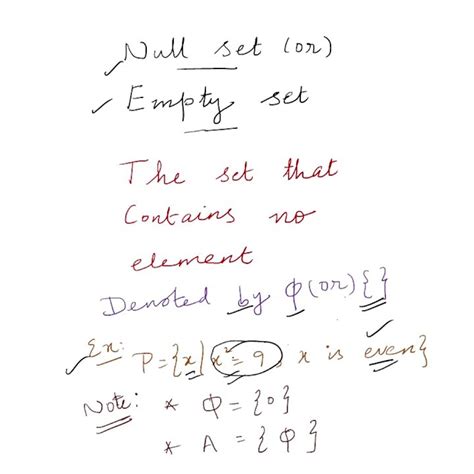 Null set (or)
Empty set
The set that
Contains no
element
Denoted by φ (or) {}
Ex: P = {x | x² = 9, x is even}
Note: * φ = {0}
* A = {φ}